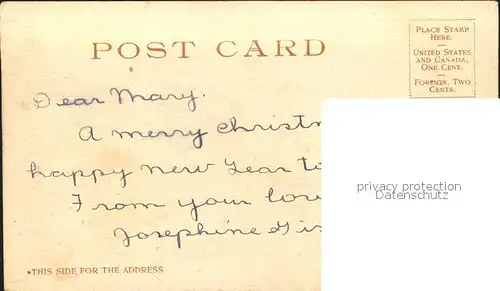 POST CARD
PLACE STAMP
HERE.
UNITED STATES
AND CANADA,
ONE CENT.
FOREIGN, TWO
CENTS.
Dear Mary.
A merry christm
happy new Year to
From your lov
Josephine Gi
privacy protection
Datenschutz
THIS SIDE FOR THE ADDRESS